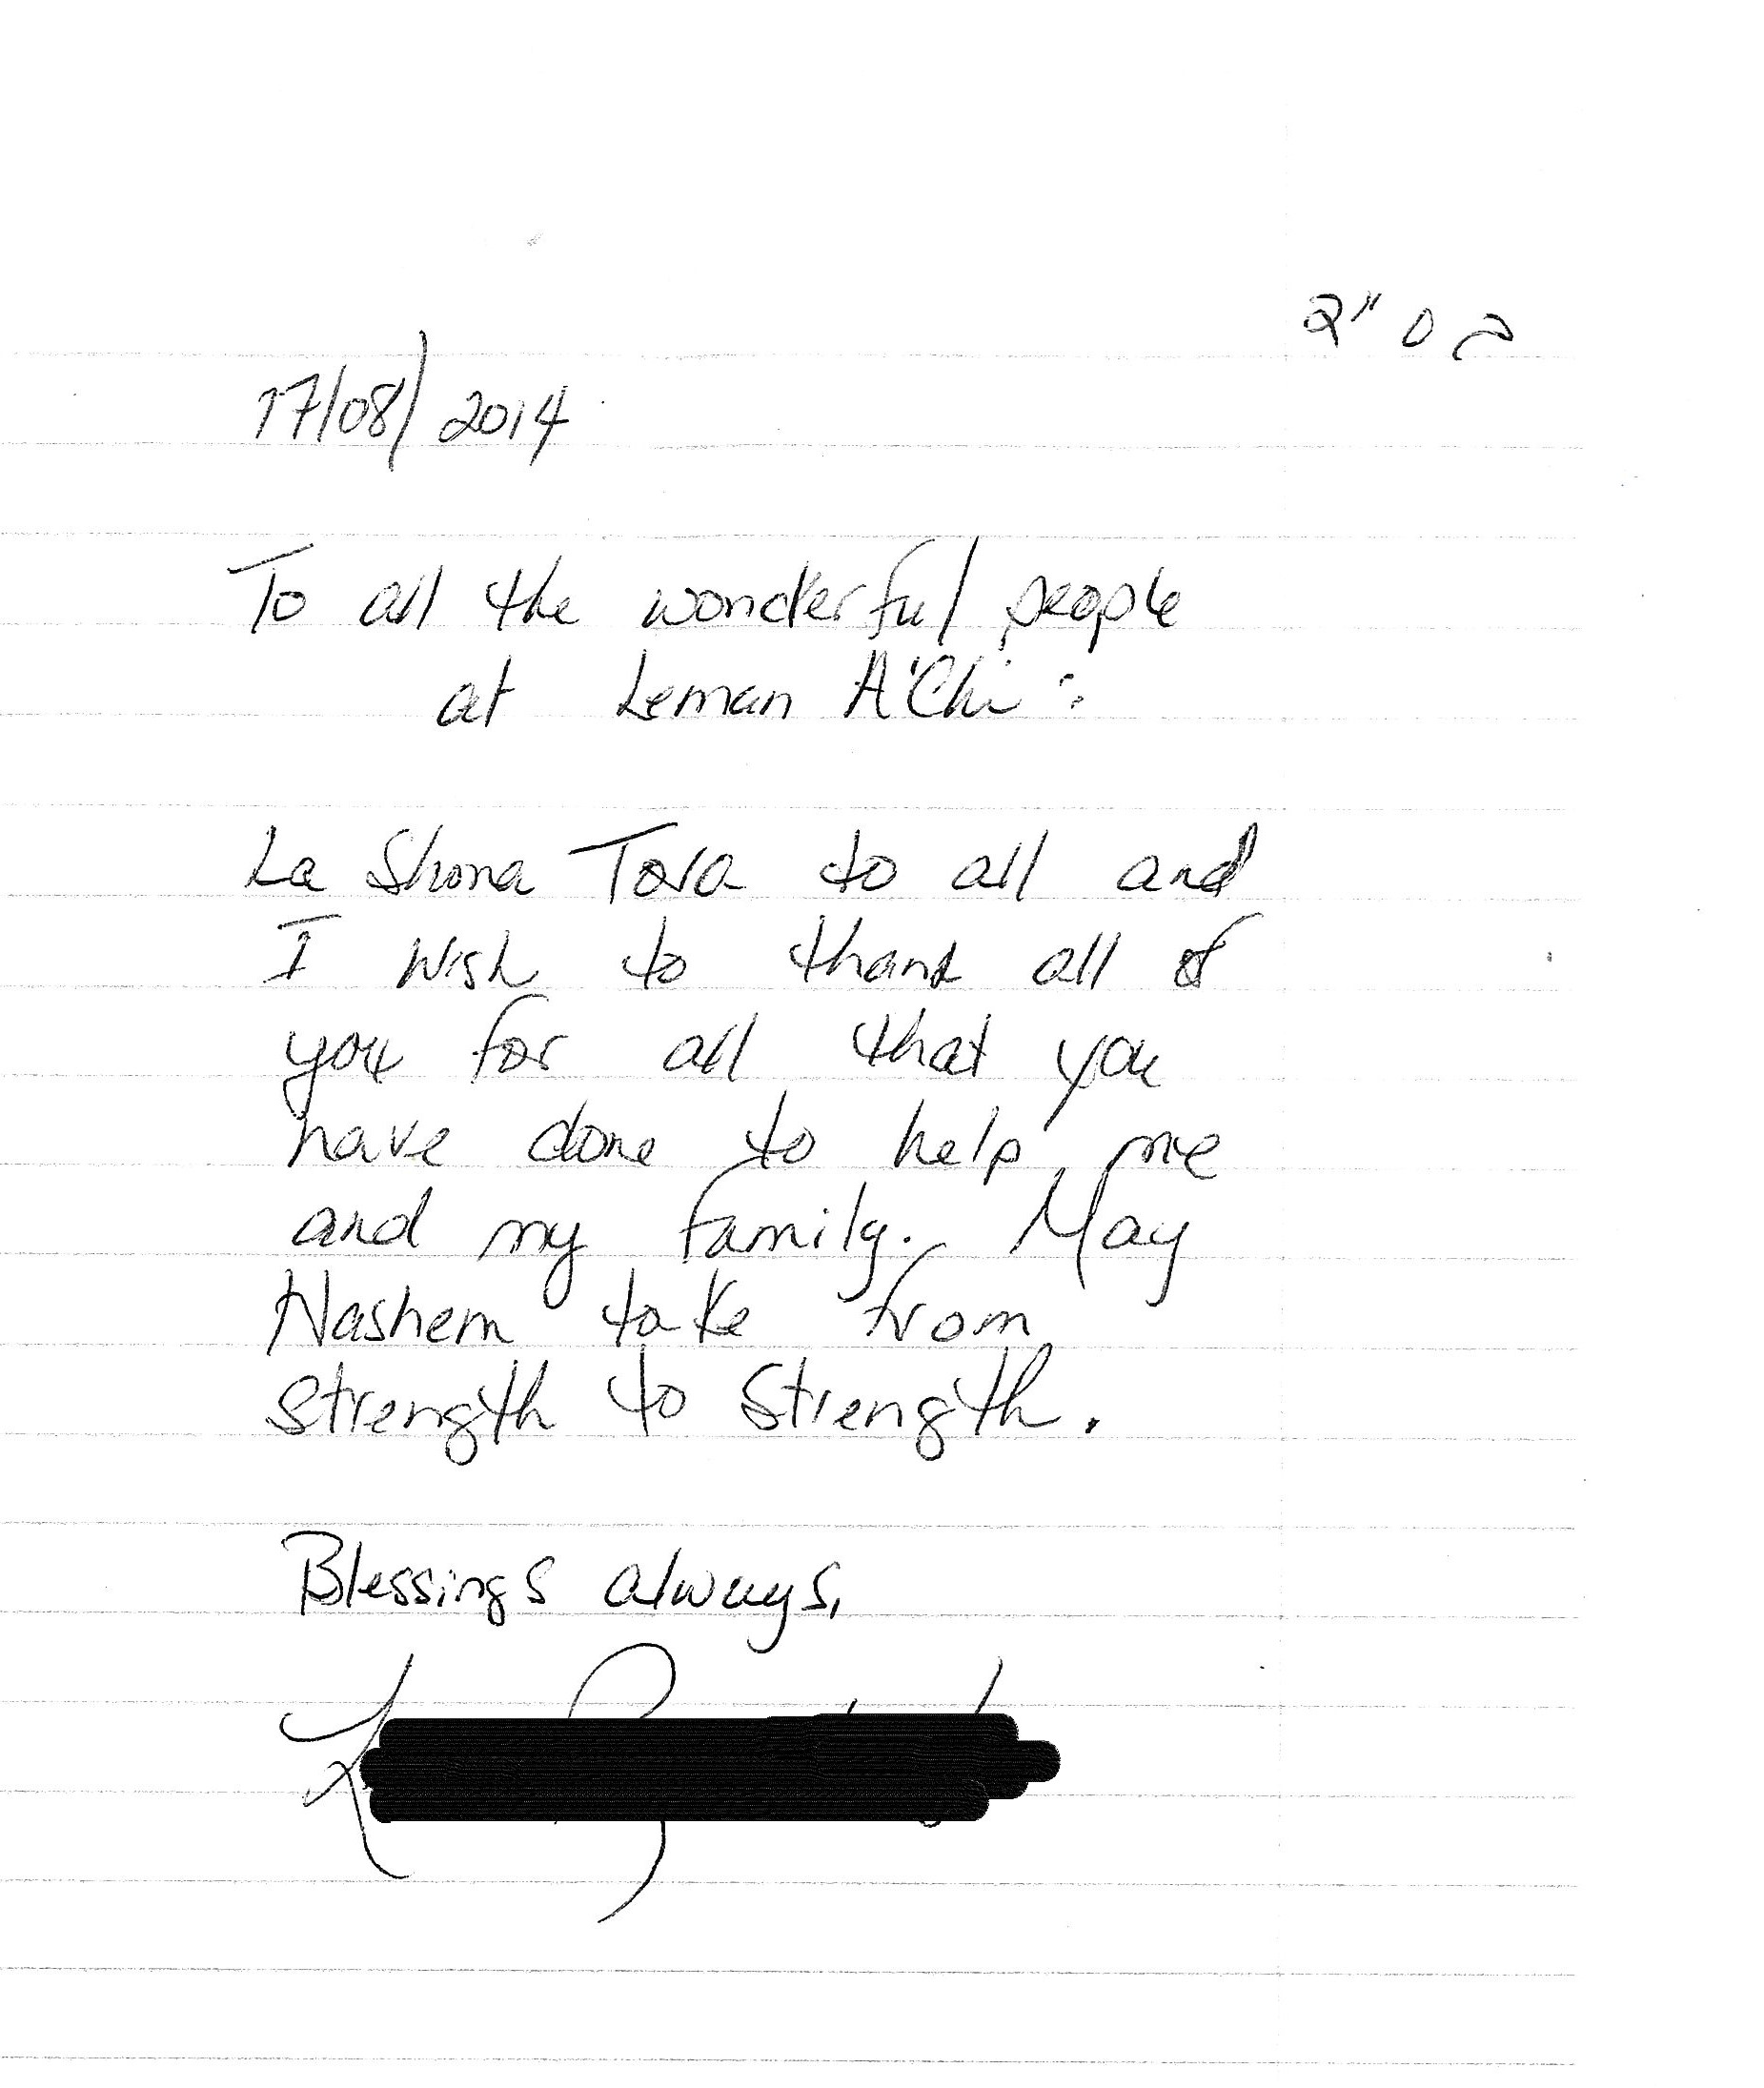 בס"ד
17/08/2014
To all the wonderful people
at Leman A'Chi:
La Shona Tova to all and
I wish to thank all of
you for all that you
have done to help me
and my family. May
Hashem take from
strength to strength.
Blessings always,